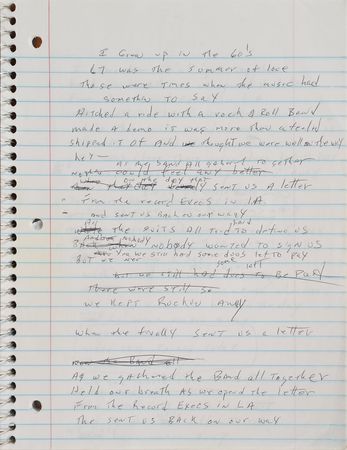 I Grew up in the 60's
67 was the summer of love
Those were times when the music had
something TO SAY
Hitched a ride with a rock & Roll Band
made a demo it was more than
shipped it OF AND we thought we were well on the way
hey—
As the Band All gathered to gether
could feel any better
on the day that
sent us A letter
From the record Execs in LA
and sent us Back on our way
the suits all tried to define us
nobody
when NOBODY wanted to sign US
You we still had some dues left to pay
BUT we were
some left
But we still had dues to Be Paid
There were still so
we KEPT Rockin Away
when the finally sent us a letter
the Band all
As we gathered the BAnd all TogetHER
Held our breath As we opend the letter
From the Record Execs in LA
The sent us BACK on our way